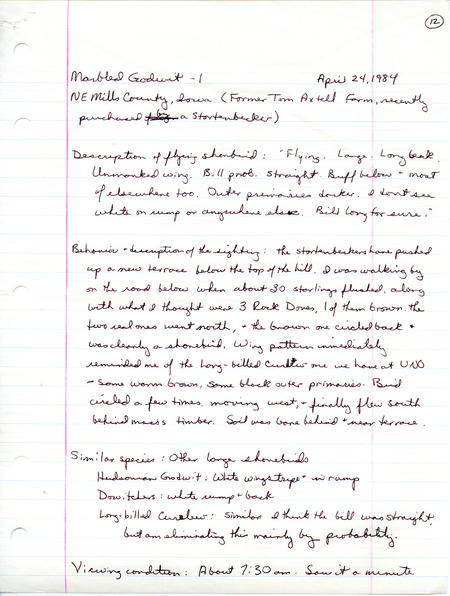 12
Marbled Godwit - 1 April 24, 1984
NE Mills County, Iowa (Former Tom Axtell Farm, recently
purchased by a Stortenbecker)
Description of flying shorebird: "Flying. Large. Long beak.
Unmarked wing. Bill prob. straight. Buff below + most
of elsewhere too. Outer primaries darker. I don't see
white on rump or anywhere else. Bill long for sure."
Behavior + description of the sighting: the Stortenbeckers have pushed
up a new terrace below the top of the hill. I was walking by
on the road below when about 30 starlings flushed, along
with what I thought were 3 Rock Doves, 1 of them brown. The
two real ones went north, + the brown one circled back +
was clearly a shorebird. Wing pattern immediately
reminded me of the Long-billed Curlew one we have at UNO
- some warm brown, some black outer primaries. Bird
circled a few times, moving west, + finally flew south
behind timber. Soil was bare behind + near terrace.
Similar species: Other large shorebirds
Hudsonian Godwit: White wingstripe + in rump
Dowitchers: white rump + back
Long-billed Curlew: similar. I think the bill was straight,
but am eliminating this mainly by probability.
Viewing condition: About 7:30 am. Saw it a minute